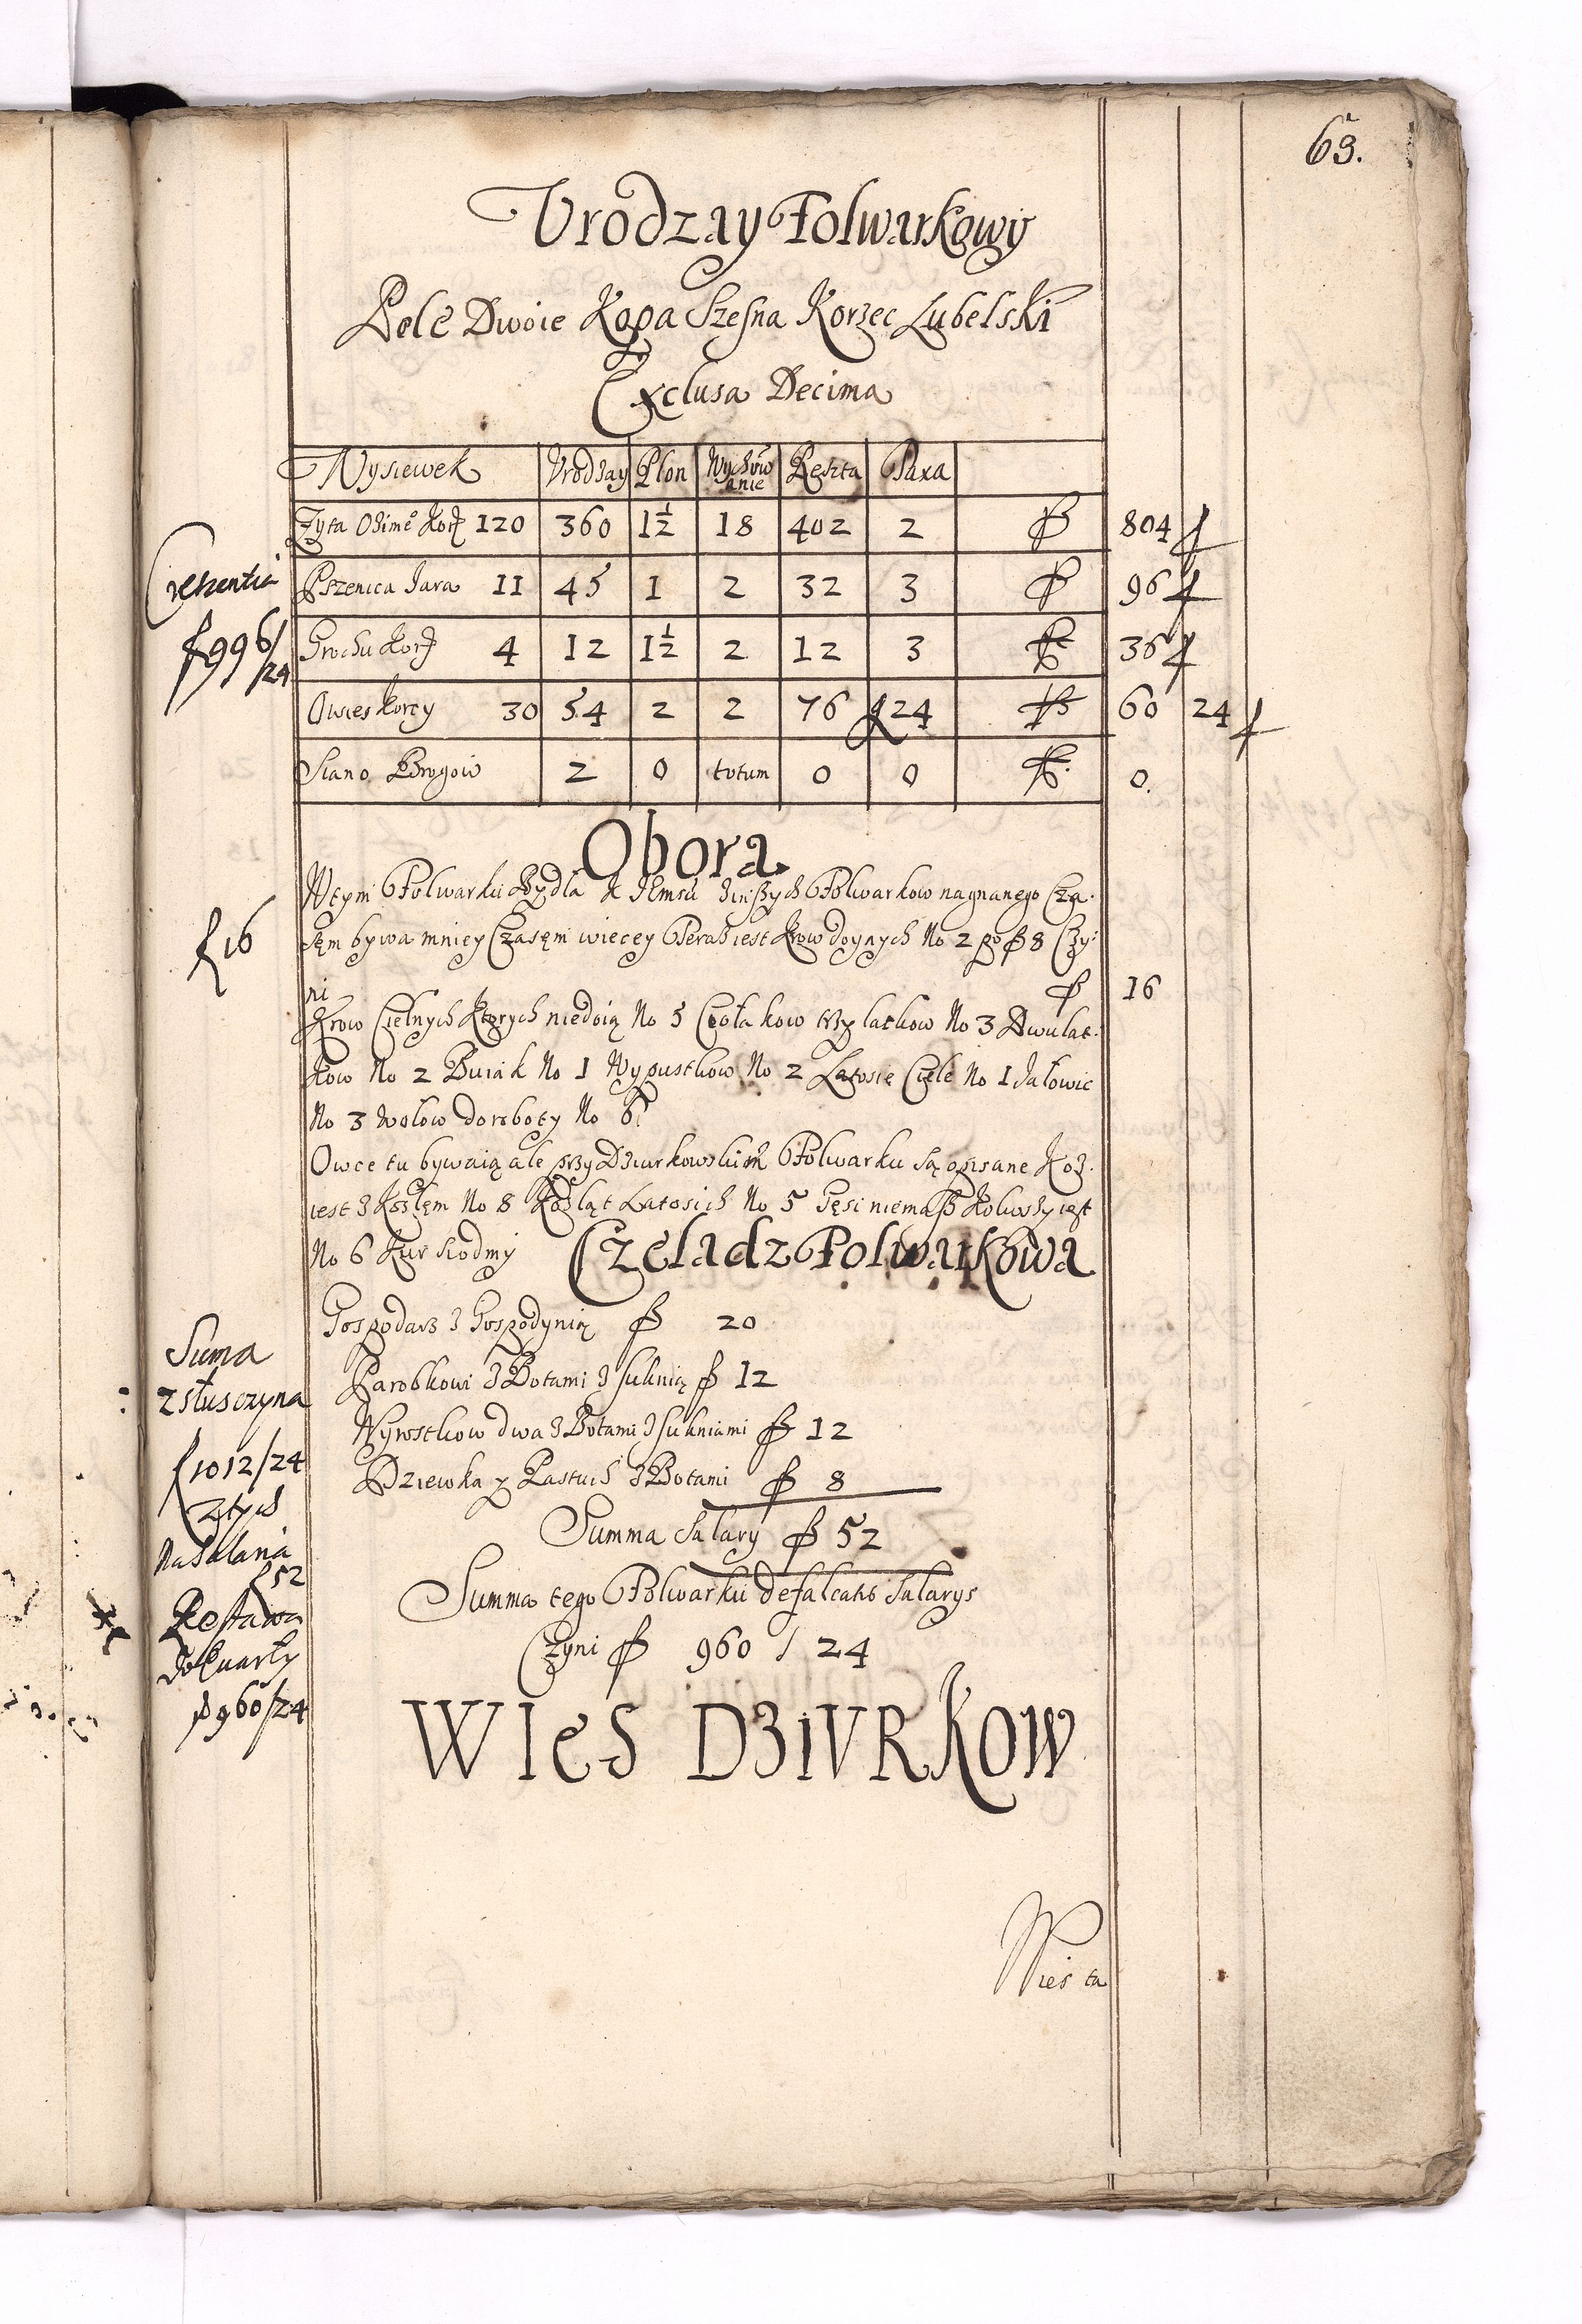 63.
Vrodzay Folwarkowy
Pole Dwoie Kopa Szesna Korzec Lubelski
Exclusa Decima
Wysiewek Vrodzay Plon Wychow anie Reszta Taxa
Zyta Ozime Korz 120 360 1½ 18 402 2 804
Pszenica Iara 11 45 1 2 32 3 96
Grochu Korz 4 12 1½ 2 12 3 36
Owies Korcy 30 54 2 2 76 24 60 24
Siano Brogow 2 0 totum 0 0 0.
Crescentia
f 996/24
Obora
Wtym Folwarku Bydla z inszych Folwarkow nagnanego Cza
sem bywa mniey Czasem wiecey Teraz iest Krow doynych No 2 po f 8 Czy
ni f 16
f 16
Krow Cielnych Ktorych niedoią No 5 Ciołakow trzylatkow No 3 Dwulat
kow No 2 Buiak No 1 Wypustkow No 2 Latosie Ciele No 1 Iałowic
No 3 Wołow doroboty No 6
Owce tu bywaią ale przy Dziurkowskim Folwarku są opisane Koz
iest z Kozłem No 8 Kozląt Latosich No 5 Gęsi niemasz Kokoszy iest
No 6 Kur siodmy
Czeladz Folwarkowa
Gospodarz z Gospodynią f 20
Parobkowi z Botami z suknią f 12
Wyrostkow dwa z Botami z sukniami f 12
Dziewka y Pastuch z Botami f 8
Summa salary f 52
Summa tego Folwarku defalcatis salarys
Czyni f 960 / 24
Suma
zstusczyna
f 1012/24
Ztych
Na Salaria
f 52
Restawa
do Kwarty
f 960/24
WIES DZIVRKOW
Wies ta